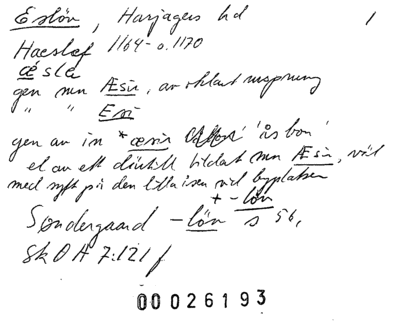 Eslöv, Harjagers hd 1
Haeslef 1164-o. 1170
æsle
gen mn Æsir, av oklart ursprung
" " Esi
gen av in *æsir 'åsbon'
el av ett därtill bildat mn Æsir, väl
med syft på den lilla åsen vid byplatsen
+ -löv
Søndergaard -löv s 56,
Sk O A 7:121 f
00026193